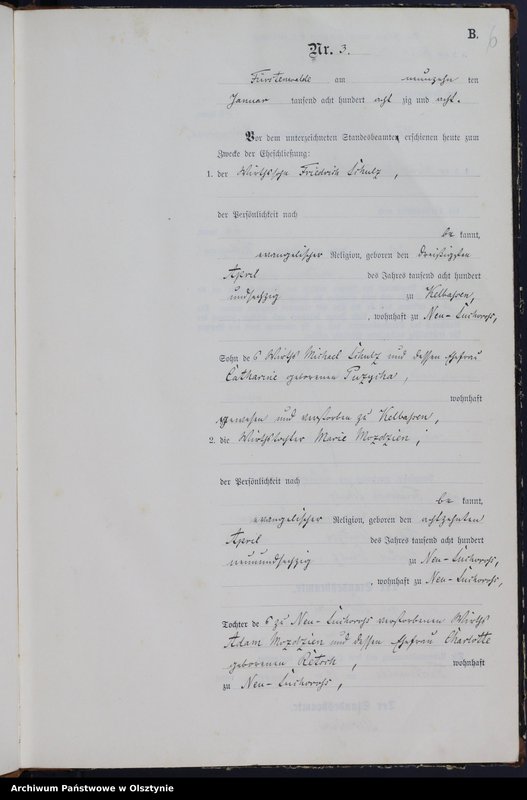 B.
6
Nr. 3.
Fürstenwalde am neunzehn ten
Januar tausend acht hundert acht zig und acht.
Vor dem unterzeichneten Standesbeamten erschienen heute zum
Zwecke der Eheschließung:
1. der Wirthssohn Friedrich Schulz,
der Persönlichkeit nach
be kannt,
evangelischer Religion, geboren den dreißigsten
April des Jahres tausend acht hundert
undsechzig zu Kelbassen,
, wohnhaft zu Neu-Suchoroß,
Sohn des Wirths Michael Schulz und dessen Ehefrau
Catharine geborenen Puzycha,
wohnhaft
gewesen und verstorben zu Kelbassen,
2. die Wirthstochter Marie Mozdzien,
der Persönlichkeit nach
be kannt,
evangelischer Religion, geboren den achtzehnten
April des Jahres tausend acht hundert
neunundsechzig zu Neu-Suchoroß,
, wohnhaft zu Neu-Suchoroß,
Tochter des zu Neu-Suchoroß verstorbenen Wirths
Adam Mozdzien und dessen Ehefrau Charlotte
geborenen Retsch, wohnhaft
zu Neu-Suchoroß,
Archiwum Państwowe w Olsztynie